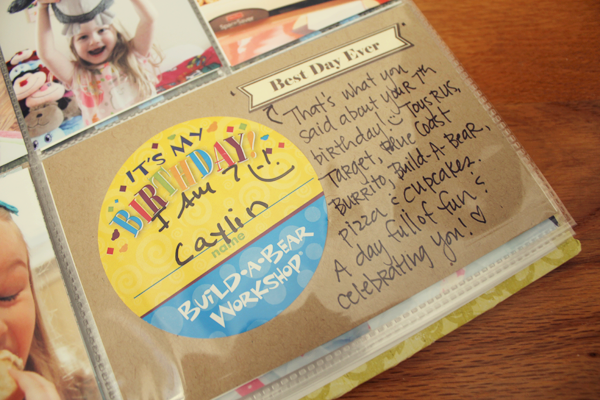 Best Day Ever
"That's what you
said about your 7th
birthday!" Toys RUs,
Target, Blue Coast
Burrito, Build-A-Bear,
pizza & cupcakes.
A day full of fun &
celebrating you! ♡
IT'S MY
BIRTHDAY!
I Am 7 !
Caitlin
name
BUILD-A-BEAR
WORKSHOP